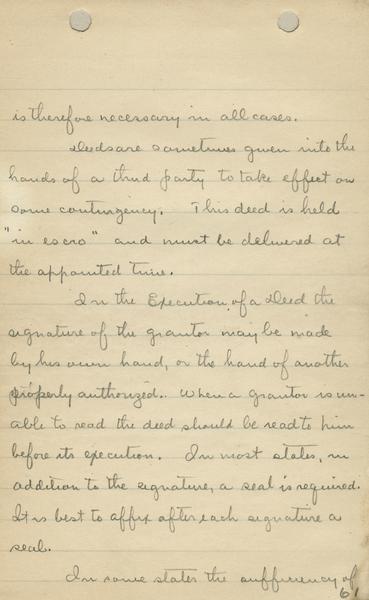 is therefore necessary in all cases.
Deeds are sometimes given into the
hands of a third party to take effect on
some contingency. This deed is held
"in escro" and must be delivered at
the appointed time.
In the Execution of a Deed the
signature of the grantor may be made
by his own hand, or the hand of another
properly authorized. When a grantor is un-
able to read the deed should be read to him
before its execution. In most states, in
addition to the signature, a seal is required.
It is best to affix after each signature a
seal.
In some states the sufficiency of
61